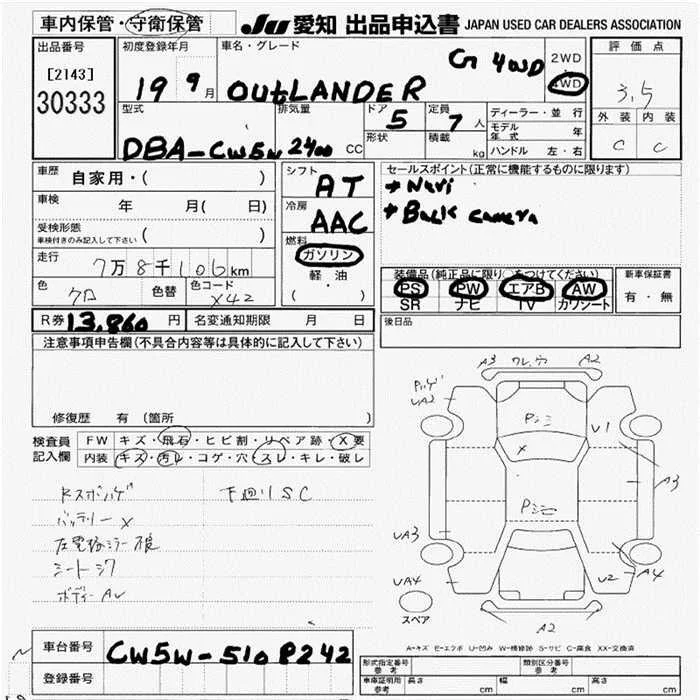 車内保管・守衛保管
JU 愛知 出品申込書 JAPAN USED CAR DEALERS ASSOCIATION
出品番号
[2143]
30333
初度登録年月
19 9月
車名・グレード
OUTLANDER
G 4WD
2WD
4WD
評価点
3.5
外装 内装
C C
型式
DBA-CW5W
排気量
2400 CC
ドア 5
形状
定員 7人
積載 kg
ディーラー・並行
モデル年式 年
ハンドル 左・右
車歴 自家用・( )
車検 年 月( 日)
受検形態
車検付きのみ記入して下さい ( )
走行 7万8千106km
色 クロ 色替 色コード X42
シフト AT
冷房 AAC
燃料
ガソリン
軽・油
( )
セールスポイント(正常に機能するものに限ります)
+ Navi
+ Back camera
装備品(純正品に限り○をつけてください)
PS PW エアB AW
SR ナビ TV カワシート
新車保証書
有・無
R券 13,860 円 名変通知期限 月 日
後日品
注意事項申告欄(不具合内容等は具体的に記入して下さい)
修復歴 有 (箇所 )
検査員記入欄
FW キズ・飛石・ヒビ割・リペア跡・X要
内装 キズ・汚レ・コゲ・穴・スレ・キレ・破レ
下廻りSC
バッテリーX
左電格ミラー
シート
A3 ワレ,穴 A2
UA2
Pシミ
U1
X
A3
Pシミ
UA3
UA4
U2
A4
スペア
A2
A=キズ E=エクボ U=凹み W=補修跡 S=サビ C=腐食 XX=交換済
車台番号 CW5W-5108242
登録番号
形式指定番号 参考
類別区分番号 参考
車庫証明用 参考 長さ cm 幅 cm 高さ cm